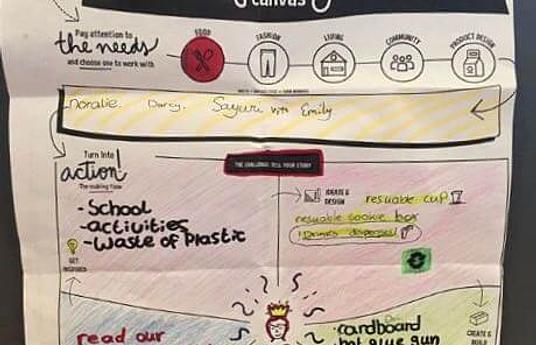 canvas
Pay attention to
the needs
and choose one to work with
FOOD
FASHION
LIVING
COMMUNITY
PRODUCT DESIGN
noralie. Darcy. Sayuri with Emily
Turn into
action!
The making flow
THE CHALLENGE: TELL YOUR STORY
- School
- activities
- Waste of Plastic
GET
INSPIRED
IDEATE &
DESIGN
resuable cup
resuable cookie box
Drinks dispenser
read our
cardboard
hot glue gun
CREATE &
BUILD